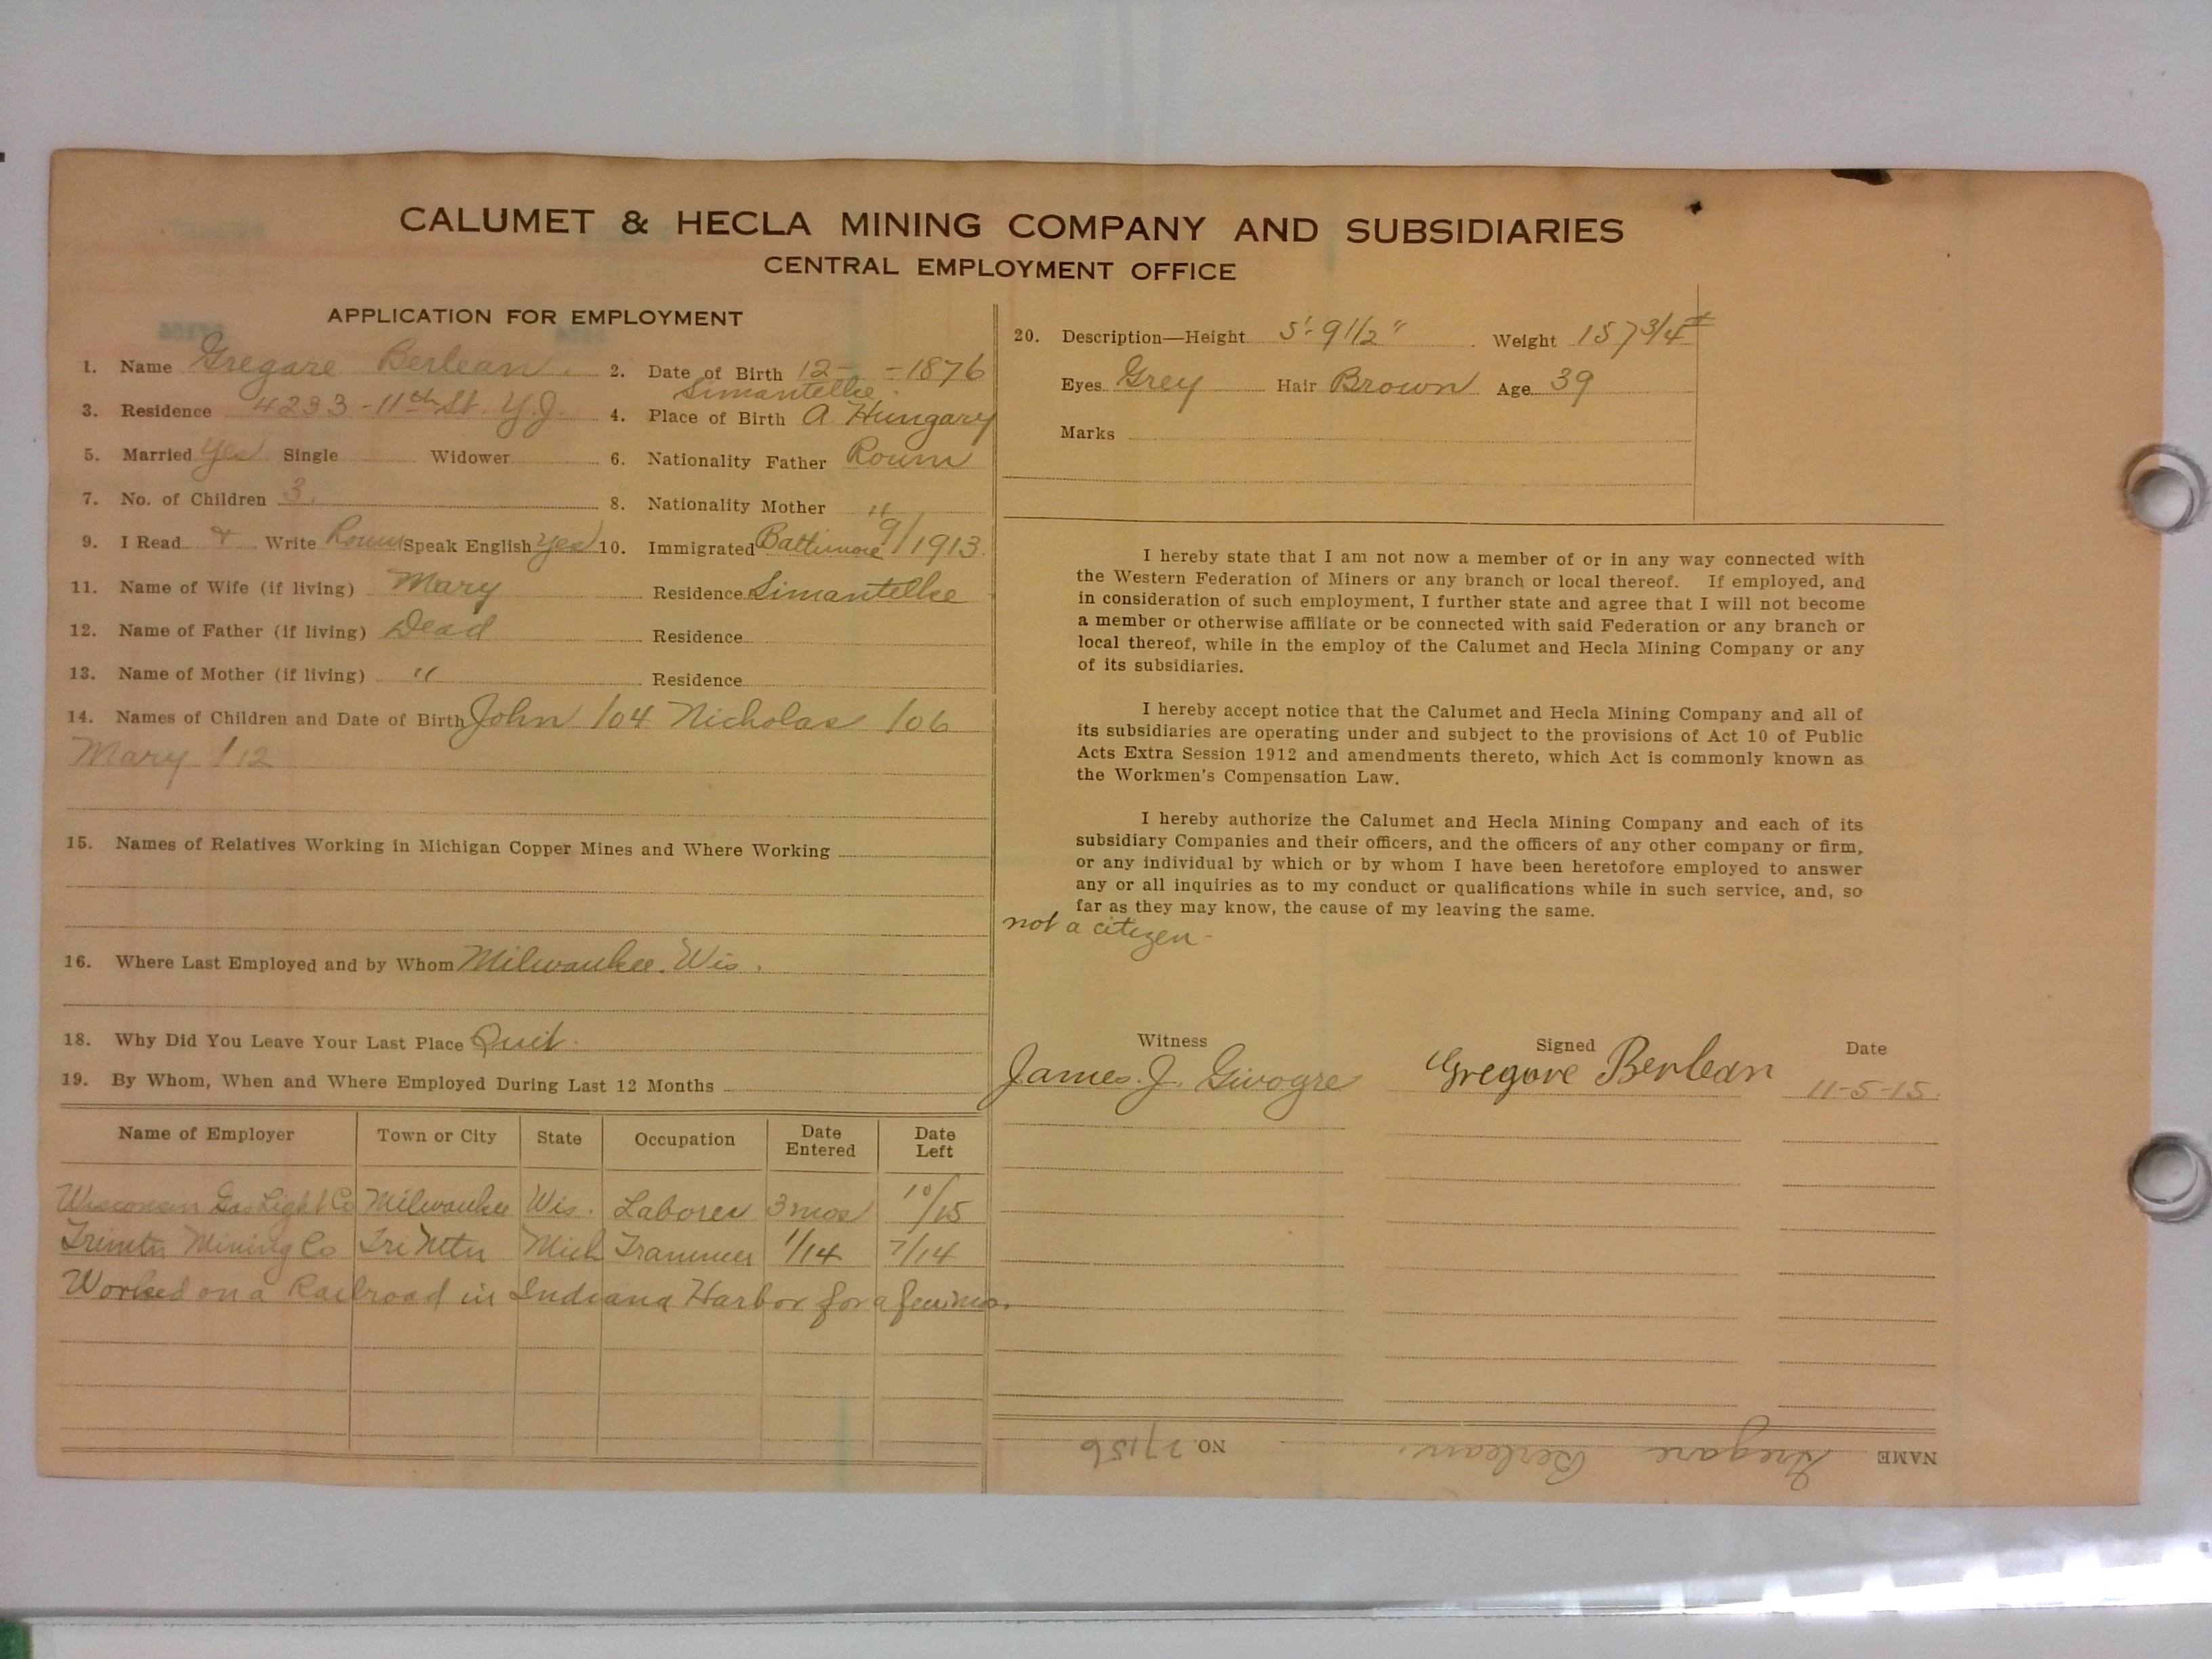 CALUMET & HECLA MINING COMPANY AND SUBSIDIARIES
CENTRAL EMPLOYMENT OFFICE
APPLICATION FOR EMPLOYMENT
1. Name Gregare Berlean. 2. Date of Birth 12- -1876
Simantelke
3. Residence 4233-11th St. Y.J. 4. Place of Birth A. Hungary
5. Married Yes Single Widower 6. Nationality Father Roum
7. No. of Children 3. 8. Nationality Mother "
9. I Read & Write Roum Speak English Yes 10. Immigrated Baltimore 9/1913.
11. Name of Wife (if living) Mary Residence Simantelke
12. Name of Father (if living) Dead Residence
13. Name of Mother (if living) " Residence
14. Names of Children and Date of Birth John /04 Nicholas /06
Mary /12
15. Names of Relatives Working in Michigan Copper Mines and Where Working
16. Where Last Employed and by Whom Milwaukee. Wis.
18. Why Did You Leave Your Last Place Quit.
19. By Whom, When and Where Employed During Last 12 Months
Name of Employer Town or City State Occupation Date Entered Date Left
Wisconsin Gas Light Co Milwaukee Wis. Laborer 3 mos 10/15
Trimtn Mining Co Tri Mtn Mich Trammer 1/14 7/14
Worked on a Railroad in Indiana Harbor for a few mos.
20. Description—Height 5'-9 1/2" Weight 157 3/4#
Eyes Grey Hair Brown Age 39
Marks
I hereby state that I am not now a member of or in any way connected with
the Western Federation of Miners or any branch or local thereof. If employed, and
in consideration of such employment, I further state and agree that I will not become
a member or otherwise affiliate or be connected with said Federation or any branch or
local thereof, while in the employ of the Calumet and Hecla Mining Company or any
of its subsidiaries.
I hereby accept notice that the Calumet and Hecla Mining Company and all of
its subsidiaries are operating under and subject to the provisions of Act 10 of Public
Acts Extra Session 1912 and amendments thereto, which Act is commonly known as
the Workmen's Compensation Law.
I hereby authorize the Calumet and Hecla Mining Company and each of its
subsidiary Companies and their officers, and the officers of any other company or firm,
or any individual by which or by whom I have been heretofore employed to answer
any or all inquiries as to my conduct or qualifications while in such service, and, so
far as they may know, the cause of my leaving the same.
not a citizen-
Witness Signed Date
James. J. Givogre Gregore Berlean 11-5-15.
NAME Gregare Berlean. NO. 27156